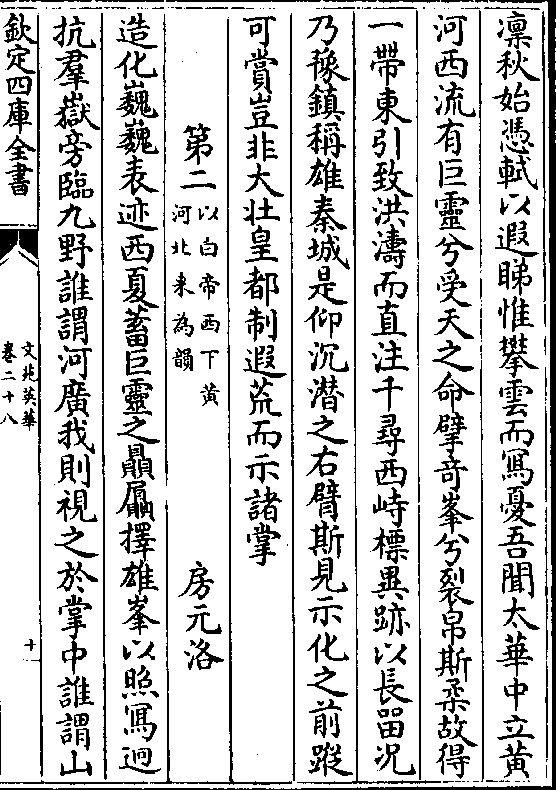 凛秋始憑軾以遐睇惟攀雲而寫憂吾聞太華中立黄
河西流有巨靈兮受天之命擘竒峯兮裂帛斯柔故得
一帶東引致洪濤而直注千尋西峙標異跡以長畱况
乃豫鎮稱雄秦城是仰沉潜之右臂斯見示化之前蹤
可賞豈非大壯皇都制遐荒而示諸掌
第二 以白帝西下黄
河北来為韻 房元洛
造化巍巍表迹西夏蓄巨靈之贔屭擇雄峯以照寫迥
抗羣嶽旁臨九野誰謂河廣我則視之於掌中誰謂山
欽定四庫全書
文苑英華
卷二十八
十